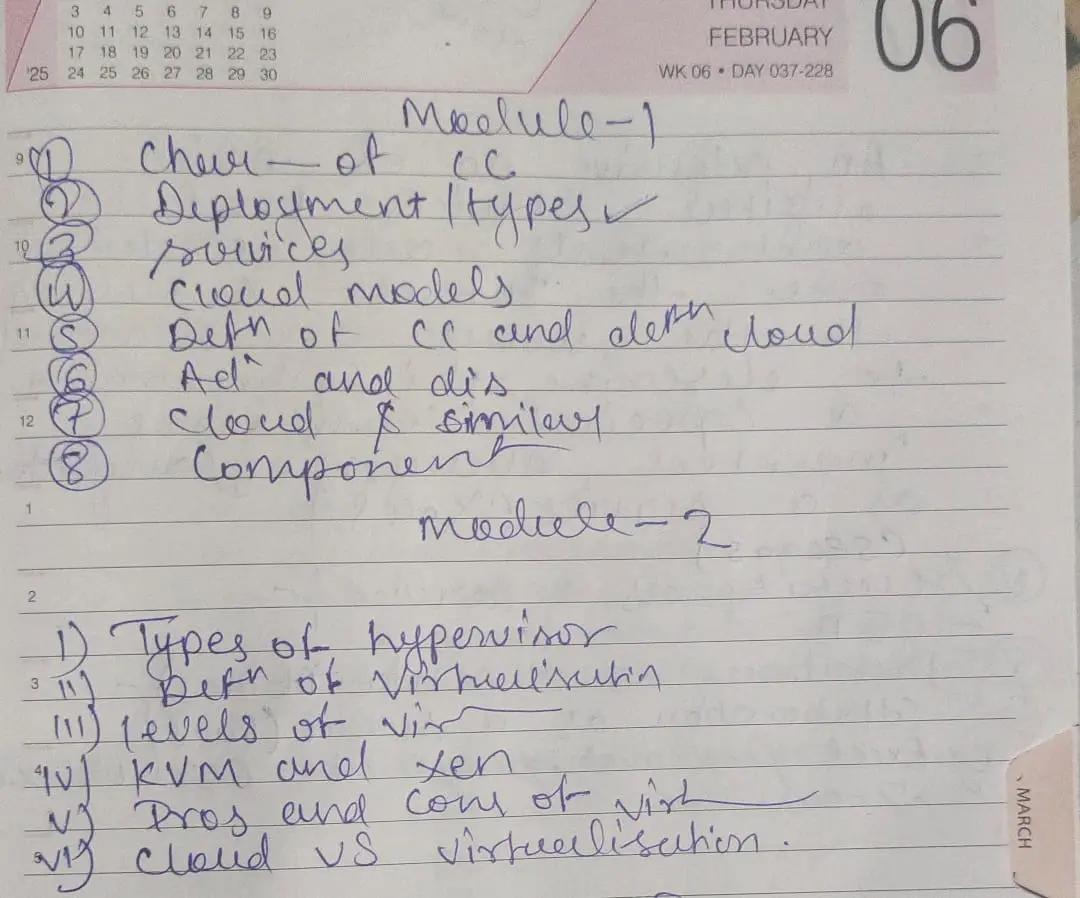 THURSDAY
3 4 5 6 7 8 9
10 11 12 13 14 15 16
17 18 19 20 21 22 23
'25 24 25 26 27 28 29 30
FEBRUARY
WK 06 • DAY 037-228
06
Module-1
9 ① Char— of CC
② Deployment/types ✓
10 ③ services
④ Cloud models
11 ⑤ Defn of CC and defn cloud
⑥ Ad^ and dis
12 ⑦ Cloud & similar
⑧ Component
1
Module-2
2
I) Types of hypervisor
3 II) Defn of Virtualisation
III) levels of vir
4 IV) KVM and xen
V) Pros and Cons of virt
VI) Cloud VS virtualisation.
MARCH